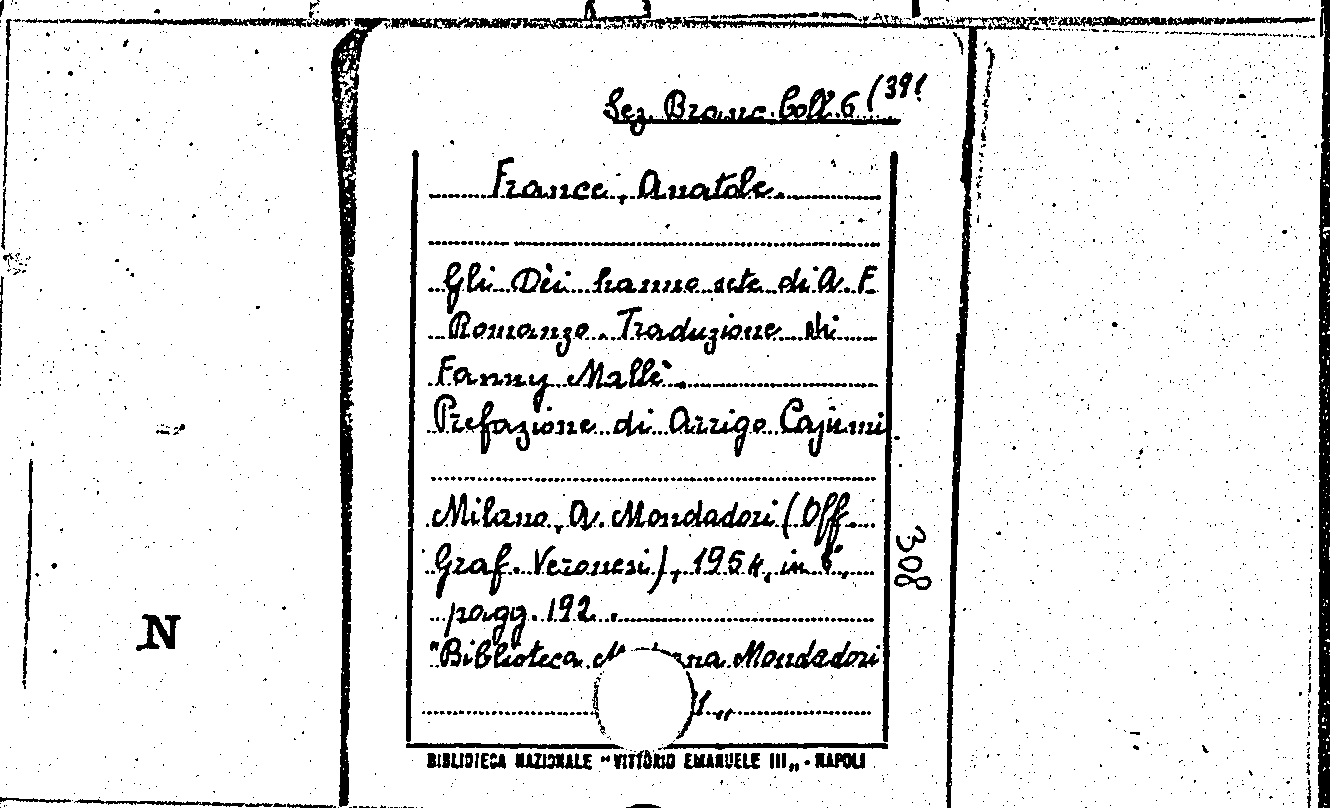 Sez. Branc. Coll. 6 (391
France, Anatole.
Gli Dèi hanno sete di A. F.
Romanzo. Traduzione di
Fanny Mallè.
Prefazione di Arrigo Cajumi.
Milano, A. Mondadori (Off.
Graf. Veronesi), 1954, in 8°,
pagg. 192.
"Biblioteca Mondadori
308
N
BIBLIOTECA NAZIONALE "VITTORIO EMANUELE III„ - NAPOLI